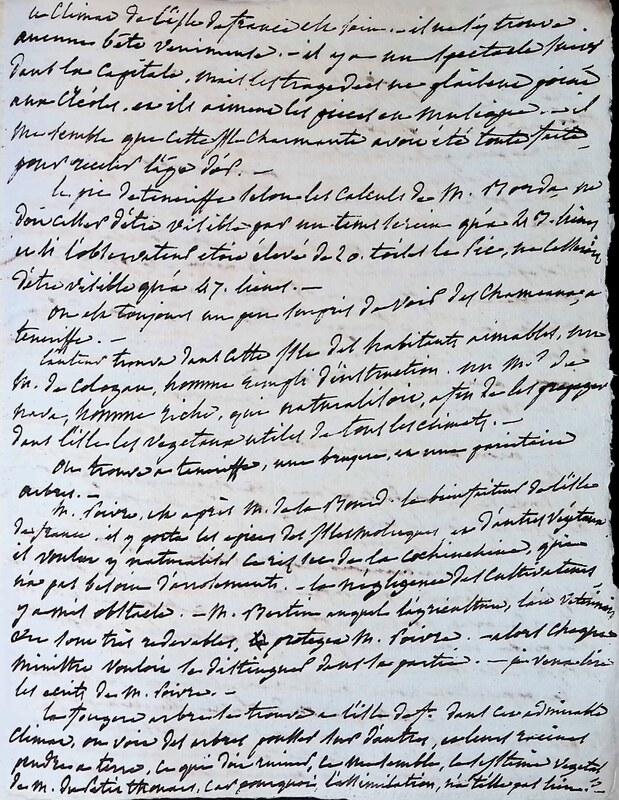 Climat de l'isle de france est sain. - il ne s'y trouve
aucunes bête venimeuse. - il y a un spectacle
dans la Capitale, mais les tragedies ne plaisent point
aux Créoles. et ils aiment les pieces en musique. - il
me semble que cette isle charmante avoit été toute faite
pour receler l'âge d'or. -
le pic de teneriffe selon les calculs de M. Borda, ne
doit cesser d'être visible par un tems serein qu'a 43 lieues
et si l'observateur etoit élevé de 20. toises le Pic, ne cesseroit
d'être visible qu'a 47. lieues. -
On est toujours un peu surpris de voir des Chameaux a
teneriffe. -
l'auteur trouva dans cette isle des habitants aimables, un
M. de Cologan, homme rempli d'instruction. un Mr de
nava, homme riche, qui naturalisoit, afin de les propager
dans l'isle les vegetaux utiles de tous les climats. -
On trouve a teneriffe, une bruyere, et une parietaire
arbres. -
M. Poivre, est après M. de la Bourd. le bienfaiteur de l'isle
de france, il y porta les epices des isles moluques, et d'autres végétaux
il voulut y naturaliser ce riz sec de la cochinchine, qui
n'a pas besoin d'arrosements. - la négligence des cultivateurs
y a mis obstacle. - M. Bertin auquel l'agriculture, l'art vétérinaire
sont très redevables, protegea M. Poivre. - alors chaque
ministre vouloit se distinguer dans sa partie. - je veux lire
les ecrits de M. Poivre. -
la fougere arbre se trouve a l'isle de f. dans cet admirable
climat, on voit des arbres pousser sur d'autres, et leurs racines
pendre a terre, ce qui doit ruiner, ce me semble, le systême vegetal
de M. du Petit thouars, car pourquoi, l'assimilation, n'a t'elle pas lieu?